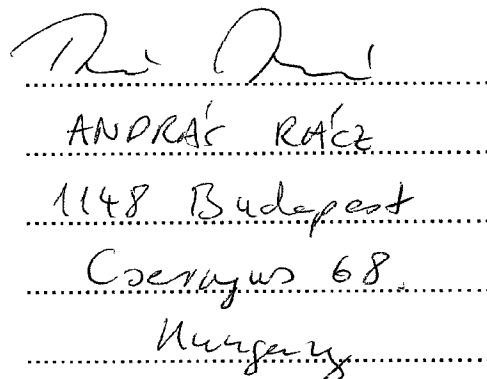 ANDRÁS RÁCZ
1148 Budapest
Csernyus 68.
Hungary